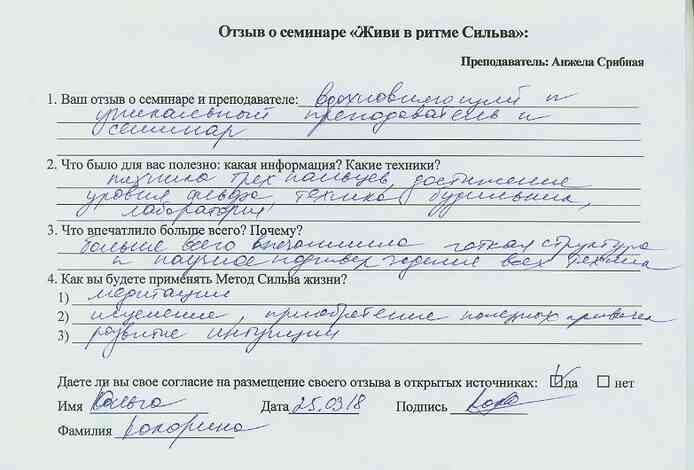 Отзыв о семинаре «Живи в ритме Сильва»:
Преподаватель: Анжела Срибная
1. Ваш отзыв о семинаре и преподавателе: вдохновляющий и
уникальный преподаватель и
семинар
2. Что было для вас полезно: какая информация? Какие техники?
техника трех пальцев, достижение
уровня альфа, техника будильника,
лаборатория
3. Что впечатлило больше всего? Почему?
больше всего впечатлила четкая структура
и научное подтверждение всех техник
4. Как вы будете применять Метод Сильва жизни?
1) медитации
2) исцеление, приобретение полезных привычек
3) развитие интуиции
Даете ли вы свое согласие на размещение своего отзыва в открытых источниках: да нет
Имя Ольга Дата 25.03.18 Подпись
Фамилия